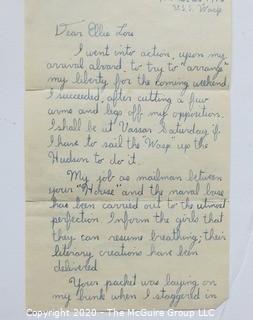 U.S.S. Wasp
Dear Ellie Lou
I went into action, upon my
araval abvard, to try to "arrange"
my liberty for the coming weekend.
I succeeded, after cutting a few
arms and legs off my opposition.
I shall be at Vassar Saturday if
I have to sail the "Wasp" up the
Hudson to do it.
My job as mailman between
your "House" and the naval base
has been carried out to the utmost
perfection. Inform the girls that
they can resume breathing; their
literary creations have been
delivered.
Your packet was laying on
my bunk when I staggered in
Copyright 2020 - The McGuire Group LLC